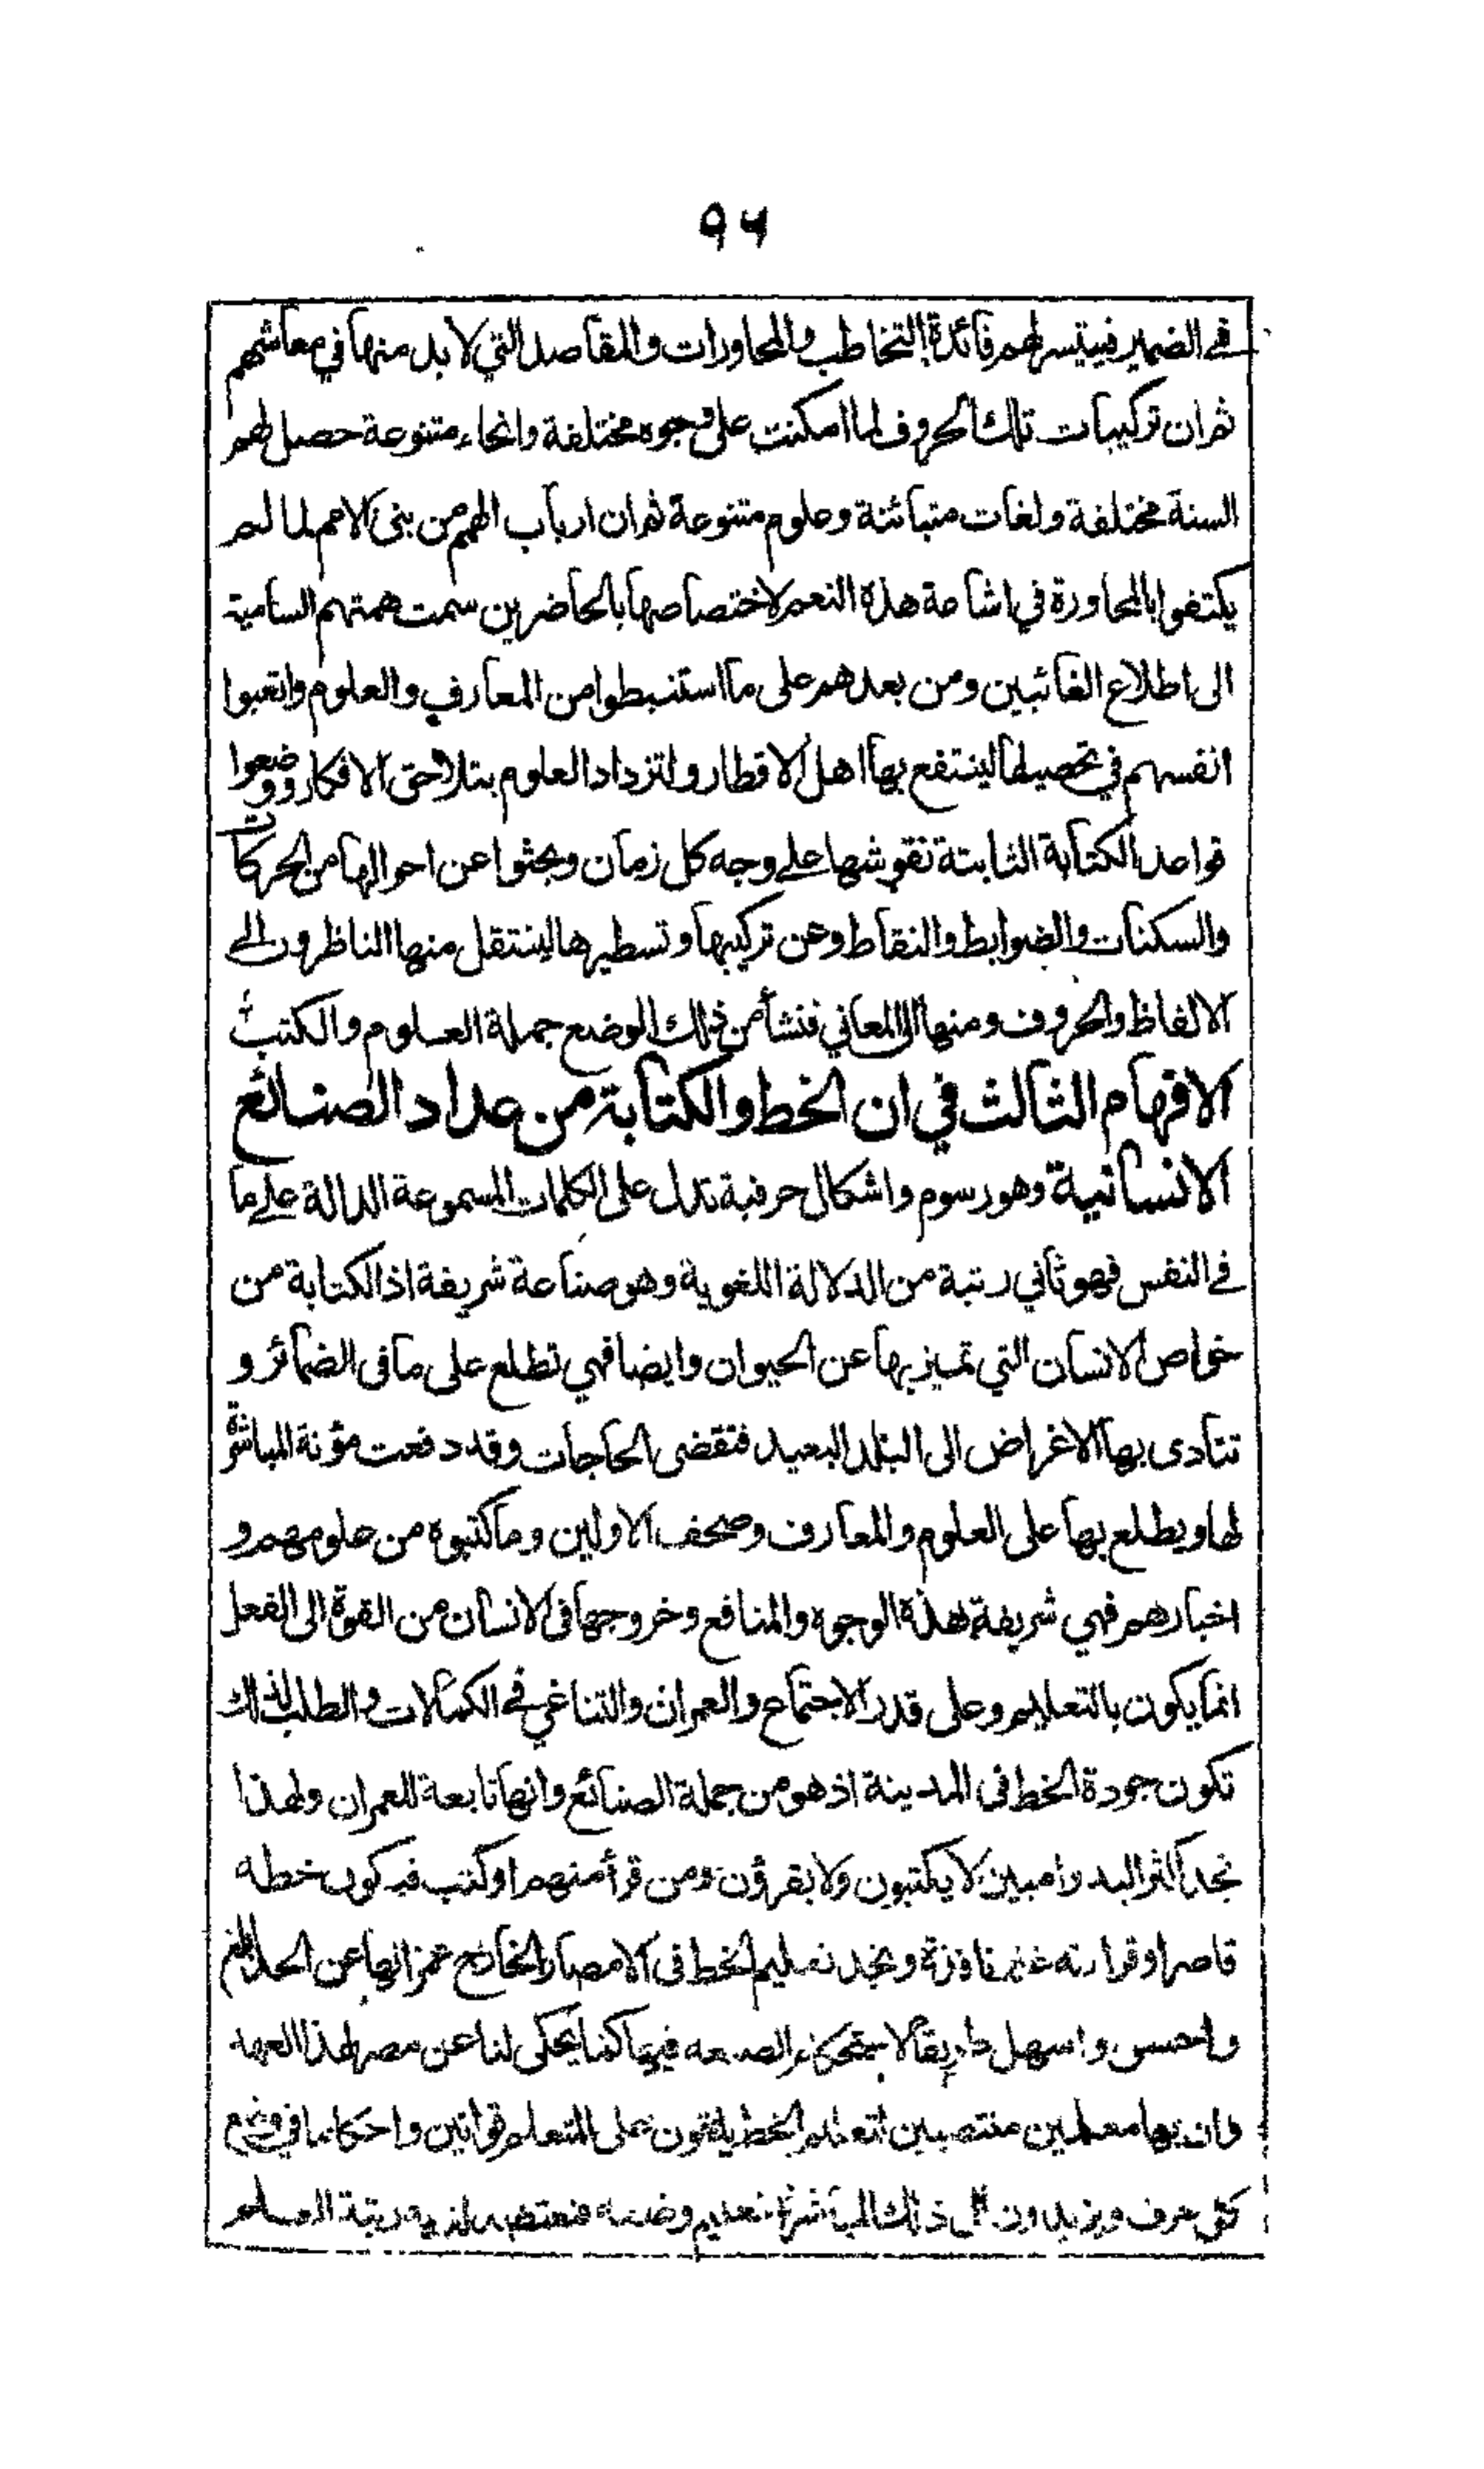 ٩٦
في الضمير فيتيسر لهم فائدة التخاطب والمحاورات والمقاصد التي لا بد منها في معاشهم
ثم ان تركيبات تلك الحروف لما امكنت على وجوه مختلفة وانحاء متنوعة حصل لهم
السنة مختلفة ولغات متبائنة وعلوم متنوعة ثم ان ارباب الهمم من بني الامم لما لم
يكتفوا بالمحاورة في اشاعة هذه النعم لاختصاصها بالحاضرين سمت همتهم السامية
الى اطلاع الغائبين ومن بعدهم على ما استنبطوا من المعارف والعلوم واتعبوا
انفسهم في تحصيلها لينتفع بها اهل الاقطار ولتزداد العلوم بتلاحق الافكار ووضعوا
قواعد الكتابة الثابتة نقوشها على وجه كل زمان وبحثوا عن احوالها من الحركات
والسكنات والضوابط والنقاط وعن تركيبها وتسطيرها لينتقل منها الناظرون الى
الالفاظ والحروف ومنها الى المعاني فنشأ من ذلك الوضع جملة العلوم والكتب
الافهام الثالث في ان الخط والكتابة من عداد الصنائع
الانسانية وهو رسوم واشكال حرفية تدل على الكلمات المسموعة الدالة على ما
في النفس فهو ثاني رتبة من الدلالة اللغوية وهو صناعة شريفة اذ الكتابة من
خواص الانسان التي تميز بها عن الحيوان وايضا فهي تطلع على ما فى الضمائر و
تتادى بها الاغراض الى البلد البعيد فتقضى الحاجات وقد دفعت مؤنة المباشرة
لها ويطلع بها على العلوم والمعارف وصحف الاولين وما كتبوه من علومهم و
اخبارهم فهي شريفة لهذه الوجوه والمنافع وخروجها فى الانسان من القوة الى الفعل
انما يكون بالتعليم وعلى قدر الاجتماع والعمران والتناغي في الكمالات والطلب لذلك
تكون جودة الخط فى المدينة اذ هو من جملة الصنائع وانها تابعة للعمران ولهذا
نجد اكثر البدو اميين لا يكتبون ولا يقرؤن ومن قرأ منهم او كتب فيكون خطه
قاصرا وقراءته غير نافذة ونجد تعليم الخط فى الامصار الخارج عمرانها عن الحد ابلغ
واحسن واسهل طريقا لاستحكام الصنعه فيها كما يحكى لنا عن مصر لهذا العهد
وان بها معلمين منتصبين لتعليم الخط يلقون على المتعلم قوانين واحكاما في وضع
كل حرف ويزيدون الى ذلك المباشرة بتعليم وضعه فتعتضد لديه رتبة العلم